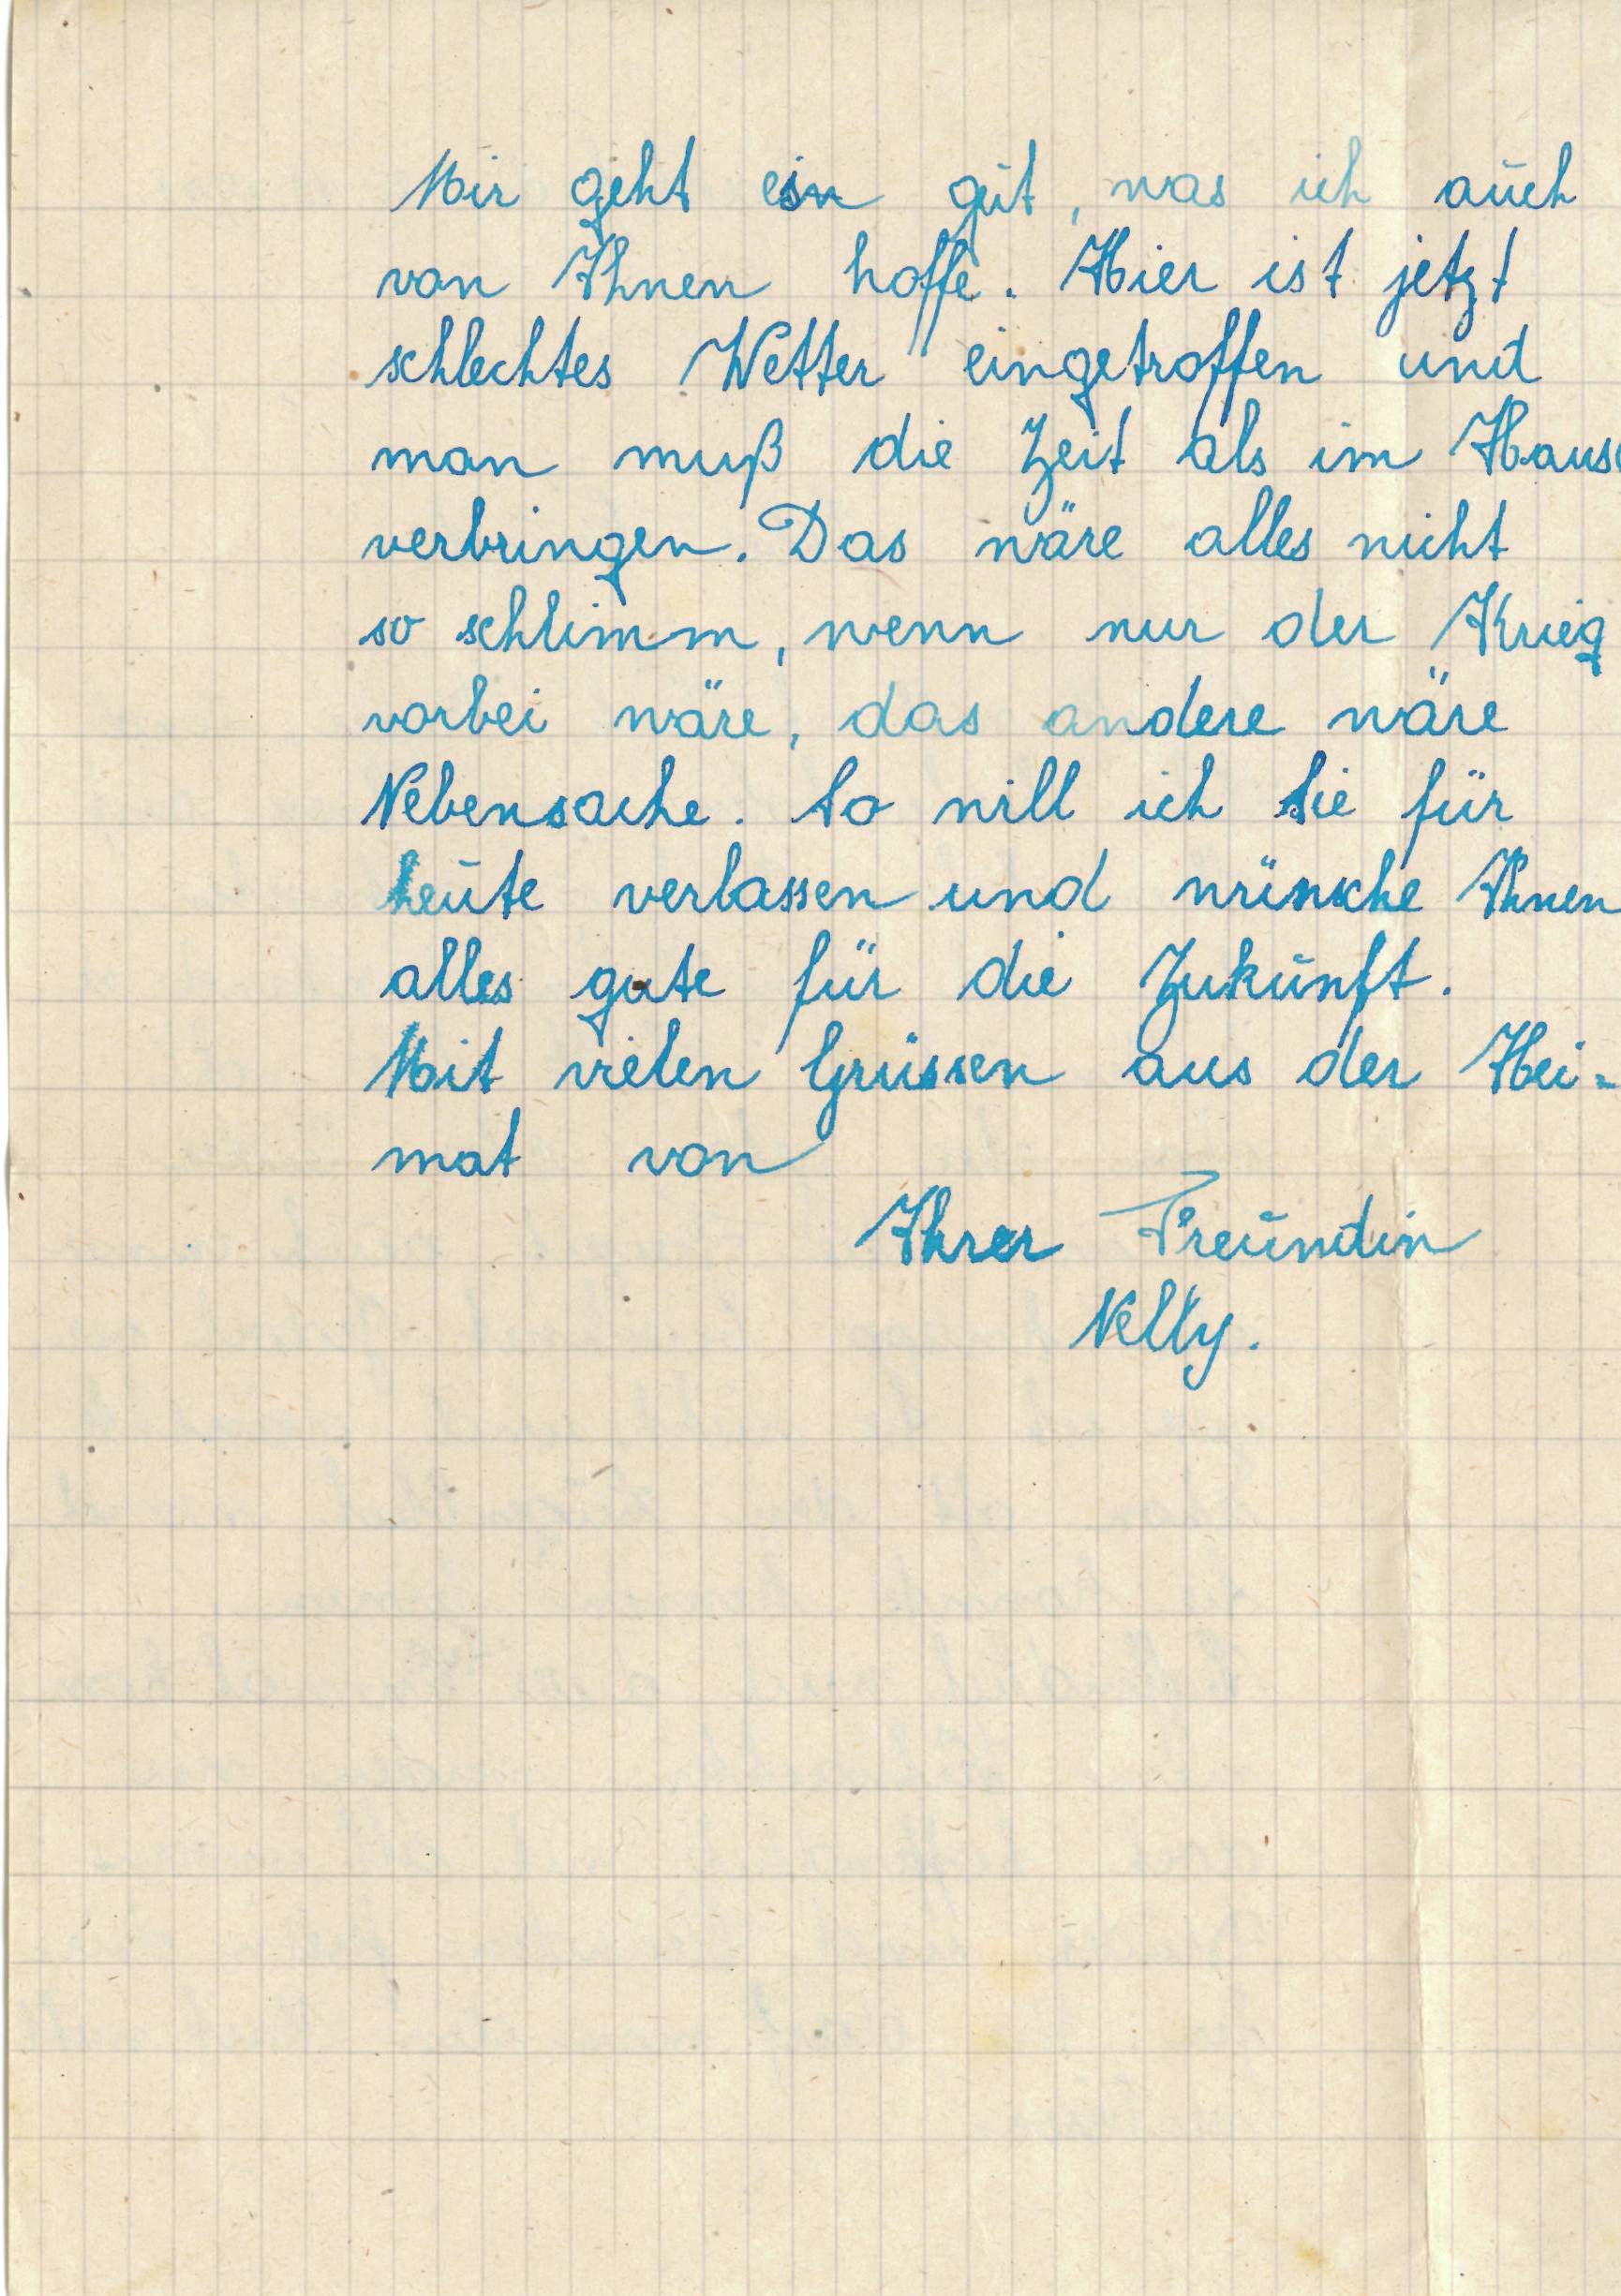 Mir geht es gut, was ich auch
von Ihnen hoffe. Hier ist jetzt
schlechtes Wetter eingetroffen und
man muß die Zeit als im Hause
verbringen. Das wäre alles nicht
so schlimm, wenn nur der Krieg
vorbei wäre, das andere wäre
Nebensache. So will ich Sie für
heute verlassen und wünsche Ihnen
alles gute für die Zukunft.
Mit vielen Grüssen aus der Hei=
mat von
Ihrer Freundin
Nelly.